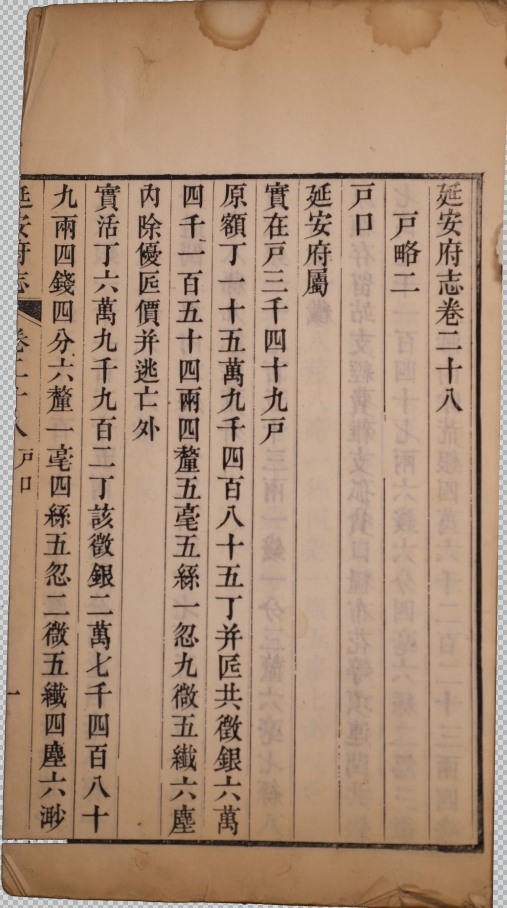 延安府志卷二十八
戸略二
戸口
延安府屬
實在戸三千四十九戸
原額丁一十五萬九千四百八十五丁并匠共徵銀六萬
四千一百五十四兩四釐五毫五絲一忽九微五纖六塵
內除優匠價并逃亡外
實活丁六萬九千九百二丁該徵銀二萬七千四百八十
九兩四錢四分六釐一毫四絲五忽二微五纖四塵六渺
延安府志 卷二十八 戸口 一